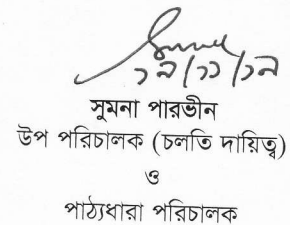 ১৯/১১/১৯
সুমনা পারভীন
উপ পরিচালক (চলতি দায়িত্ব)
ও
পাঠ্যধারা পরিচালক